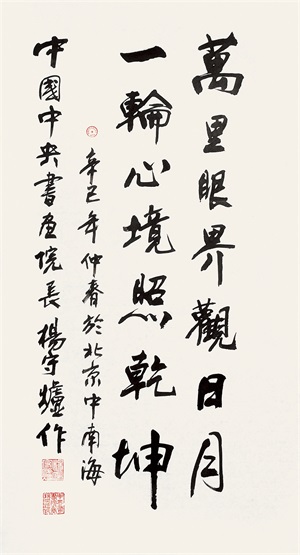 萬里眼界觀日月
一輪心境照乾坤
辛巳年仲春於北京中南海
中國中央書画院院長楊守壚作